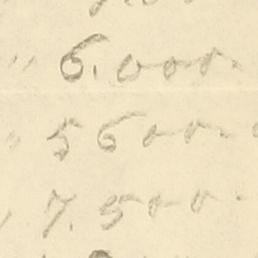 " 6.000.
" 5600.
" 7.500.